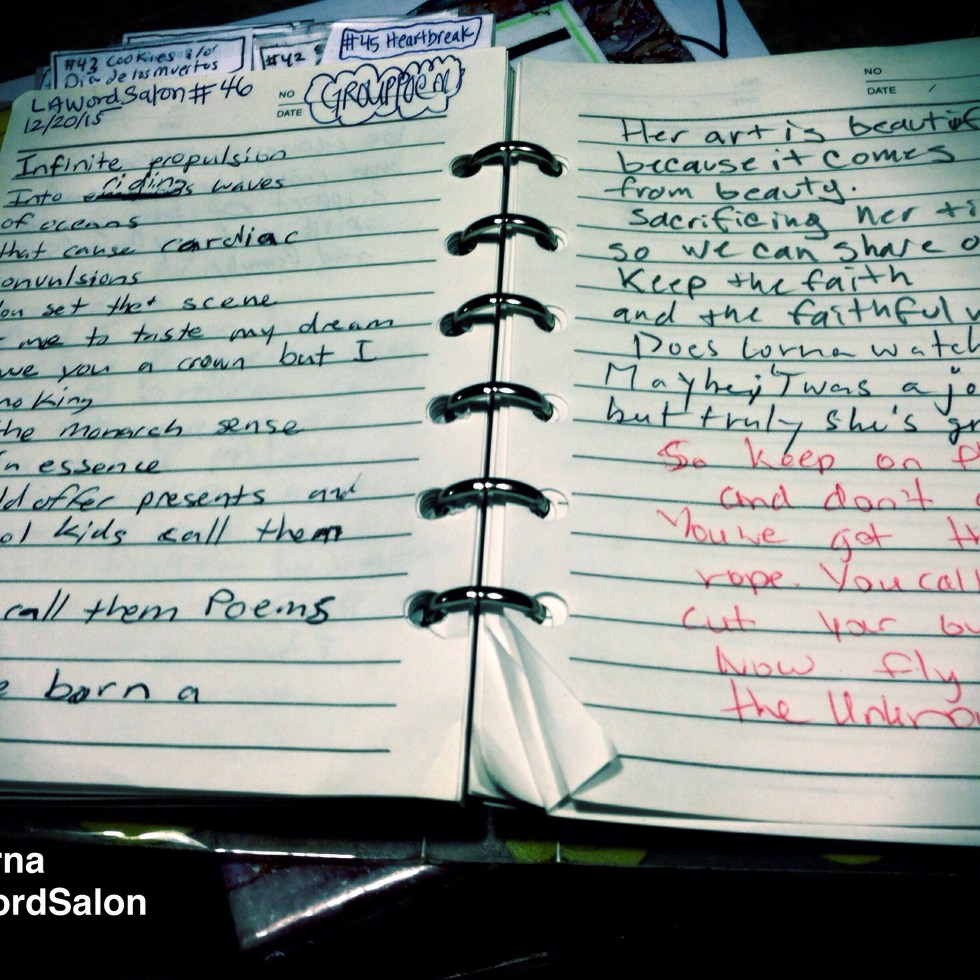 #43 Cookies &/or
Dia de los muertos
#42
#45 Heartbreak
LAWordSalon #46
12/20/15
NO
DATE
GROUP POEM
Infinite propulsion
Into ridings waves
of oceans
that cause cardiac
onvulsions
ou set that scene
me to taste my dream
we you a crown but I
no King
the Monarch sense
n essence
ld offer presents and
ol kids call them
call them Poems
e born a
NO
DATE /
Her art is beautif
because it comes
from beauty.
Sacrificing her ti
so we can share o
Keep the faith
and the faithful w
Does Lorna watch
Maybe, 'Twas a jo
but truly she's gr
So keep on fl
and don't
You've got th
rope. You call
cut your bu
Now fly
the Unkno
rna
ordSalon